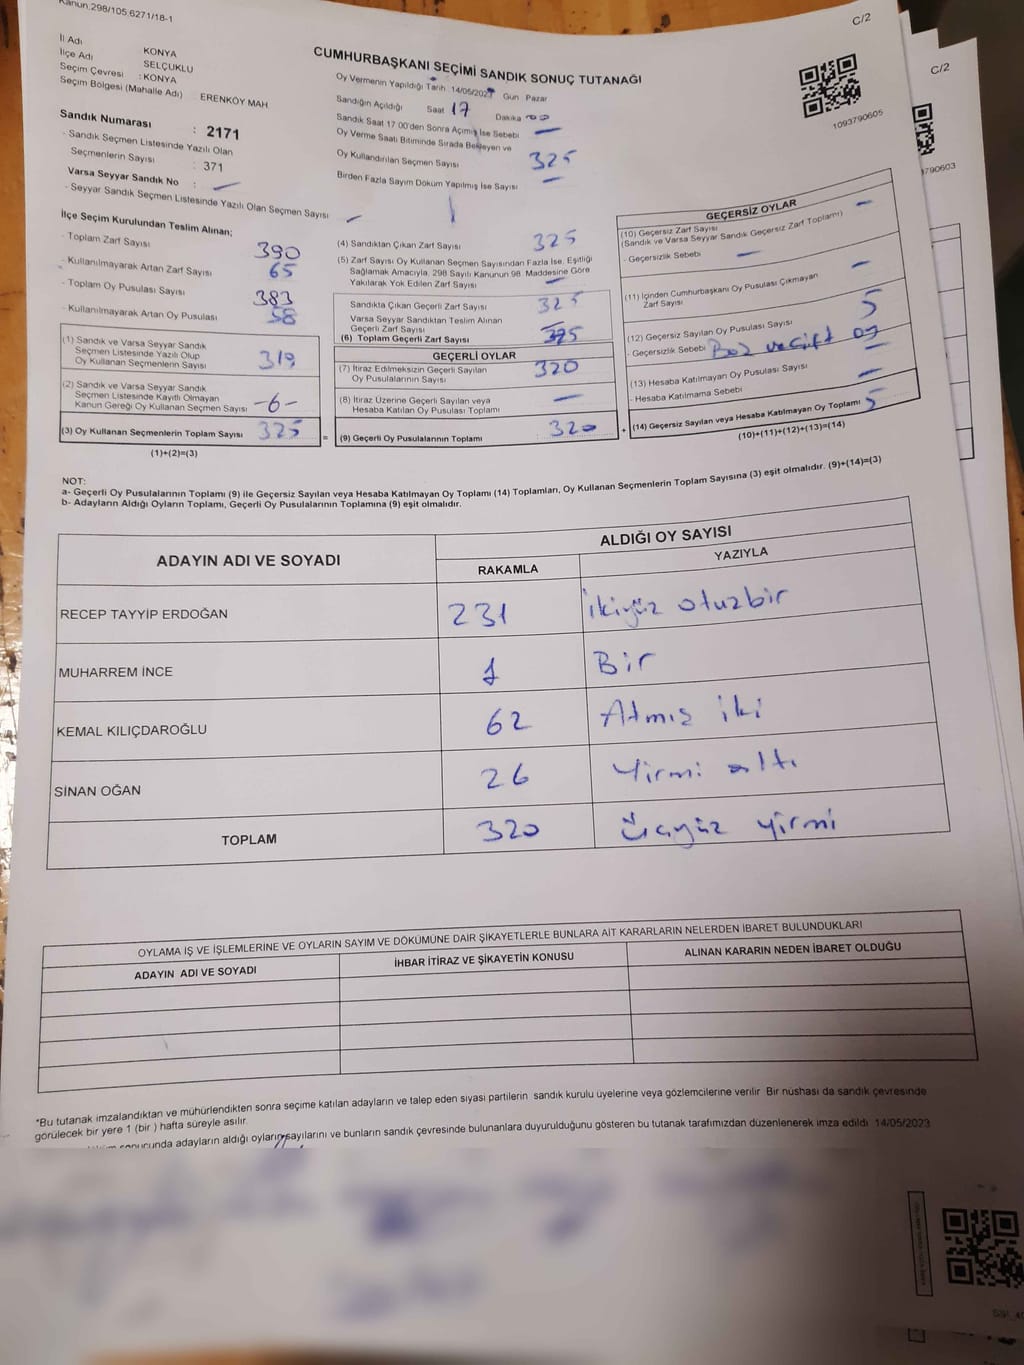 Kanun.298/105,6271/18-1
C/2
C/2
İl Adı KONYA
İlçe Adı SELÇUKLU
Seçim Çevresi : KONYA
Seçim Bölgesi (Mahalle Adı) ERENKÖY MAH
CUMHURBAŞKANI SEÇİMİ SANDIK SONUÇ TUTANAĞI
Oy Vermenin Yapıldığı Tarih 14/05/2023 Gün Pazar
Sandığın Açıldığı Saat 17 Dakika 00
Sandık Saat 17 00'den Sonra Açımış İse Sebebi —
Oy Verme Saati Bitiminde Sırada Bekleyen ve
Oy Kullandırılan Seçmen Sayısı 325
Birden Fazla Sayım Döküm Yapılmış İse Sayısı —
1093790605
790603
Sandık Numarası : 2171
- Sandık Seçmen Listesinde Yazılı Olan
Seçmenlerin Sayısı : 371
Varsa Seyyar Sandık No : —
- Seyyar Sandık Seçmen Listesinde Yazılı Olan Seçmen Sayısı —
İlçe Seçim Kurulundan Teslim Alınan;
- Toplam Zarf Sayısı 390
- Kullanılmayarak Artan Zarf Sayısı 65
- Toplam Oy Pusulası Sayısı 383
- Kullanılmayarak Artan Oy Pusulası 58
(1) Sandık ve Varsa Seyyar Sandık
Seçmen Listesinde Yazılı Olup
Oy Kullanan Seçmenlerin Sayısı 319
(2) Sandık ve Varsa Seyyar Sandık
Seçmen Listesinde Kayıtlı Olmayan
Kanun Gereği Oy Kullanan Seçmen Sayısı -6-
(3) Oy Kullanan Seçmenlerin Toplam Sayısı 325
(1)+(2)=(3)
(4) Sandıktan Çıkan Zarf Sayısı 325
(5) Zarf Sayısı Oy Kullanan Seçmen Sayısından Fazla İse, Eşitliği
Sağlamak Amacıyla, 298 Sayılı Kanunun 98. Maddesine Göre
Yakılarak Yok Edilen Zarf Sayısı —
Sandıkta Çıkan Geçerli Zarf Sayısı 325
Varsa Seyyar Sandıktan Teslim Alınan
Geçerli Zarf Sayısı —
(6) Toplam Geçerli Zarf Sayısı 325
GEÇERLİ OYLAR
(7) İtiraz Edilmeksizin Geçerli Sayılan
Oy Pusulalarının Sayısı 320
(8) İtiraz Üzerine Geçerli Sayılan veya
Hesaba Katılan Oy Pusulası Toplamı —
= (9) Geçerli Oy Pusulalarının Toplamı : 320 +
GEÇERSİZ OYLAR
(10) Geçersiz Zarf Sayısı —
(Sandık ve Varsa Seyyar Sandık Geçersiz Zarf Toplamı)
- Geçersizlik Sebebi —
(11) İçinden Cumhurbaşkanı Oy Pusulası Çıkmayan
Zarf Sayısı —
(12) Geçersiz Sayılan Oy Pusulası Sayısı 5
- Geçersizlik Sebebi Boş ve Çift oy
(13) Hesaba Katılmayan Oy Pusulası Sayısı —
- Hesaba Katılmama Sebebi —
(14) Geçersiz Sayılan veya Hesaba Katılmayan Oy Toplamı 5
(10)+(11)+(12)+(13)=(14)
NOT:
a- Geçerli Oy Pusulalarının Toplamı (9) ile Geçersiz Sayılan veya Hesaba Katılmayan Oy Toplamı (14) Toplamları, Oy Kullanan Seçmenlerin Toplam Sayısına (3) eşit olmalıdır. (9)+(14)=(3)
b- Adayların Aldığı Oyların Toplamı, Geçerli Oy Pusulalarının Toplamına (9) eşit olmalıdır.
ADAYIN ADI VE SOYADI
ALDIĞI OY SAYISI
RAKAMLA YAZIYLA
RECEP TAYYİP ERDOĞAN 231 İkiyüz otuzbir
MUHARREM İNCE 1 Bir
KEMAL KILIÇDAROĞLU 62 Atmış iki
SİNAN OĞAN 26 Yirmi altı
TOPLAM 320 Üçyüz yirmi
OYLAMA İŞ VE İŞLEMLERİNE VE OYLARIN SAYIM VE DÖKÜMÜNE DAİR ŞİKAYETLERLE BUNLARA AİT KARARLARIN NELERDEN İBARET BULUNDUKLARI
ADAYIN ADI VE SOYADI İHBAR İTİRAZ VE ŞİKAYETİN KONUSU ALINAN KARARIN NEDEN İBARET OLDUĞU
*Bu tutanak imzalandıktan ve mühürlendikten sonra seçime katılan adayların ve talep eden siyasi partilerin sandık kurulu üyelerine veya gözlemcilerine verilir Bir nüshası da sandık çevresinde
görülecek bir yere 1 (bir ) hafta süreyle asılır.
sonucunda adayların aldığı oyların sayılarını ve bunların sandık çevresinde bulunanlara duyurulduğunu gösteren bu tutanak tarafımızdan düzenlenerek imza edildi 14/05/2023